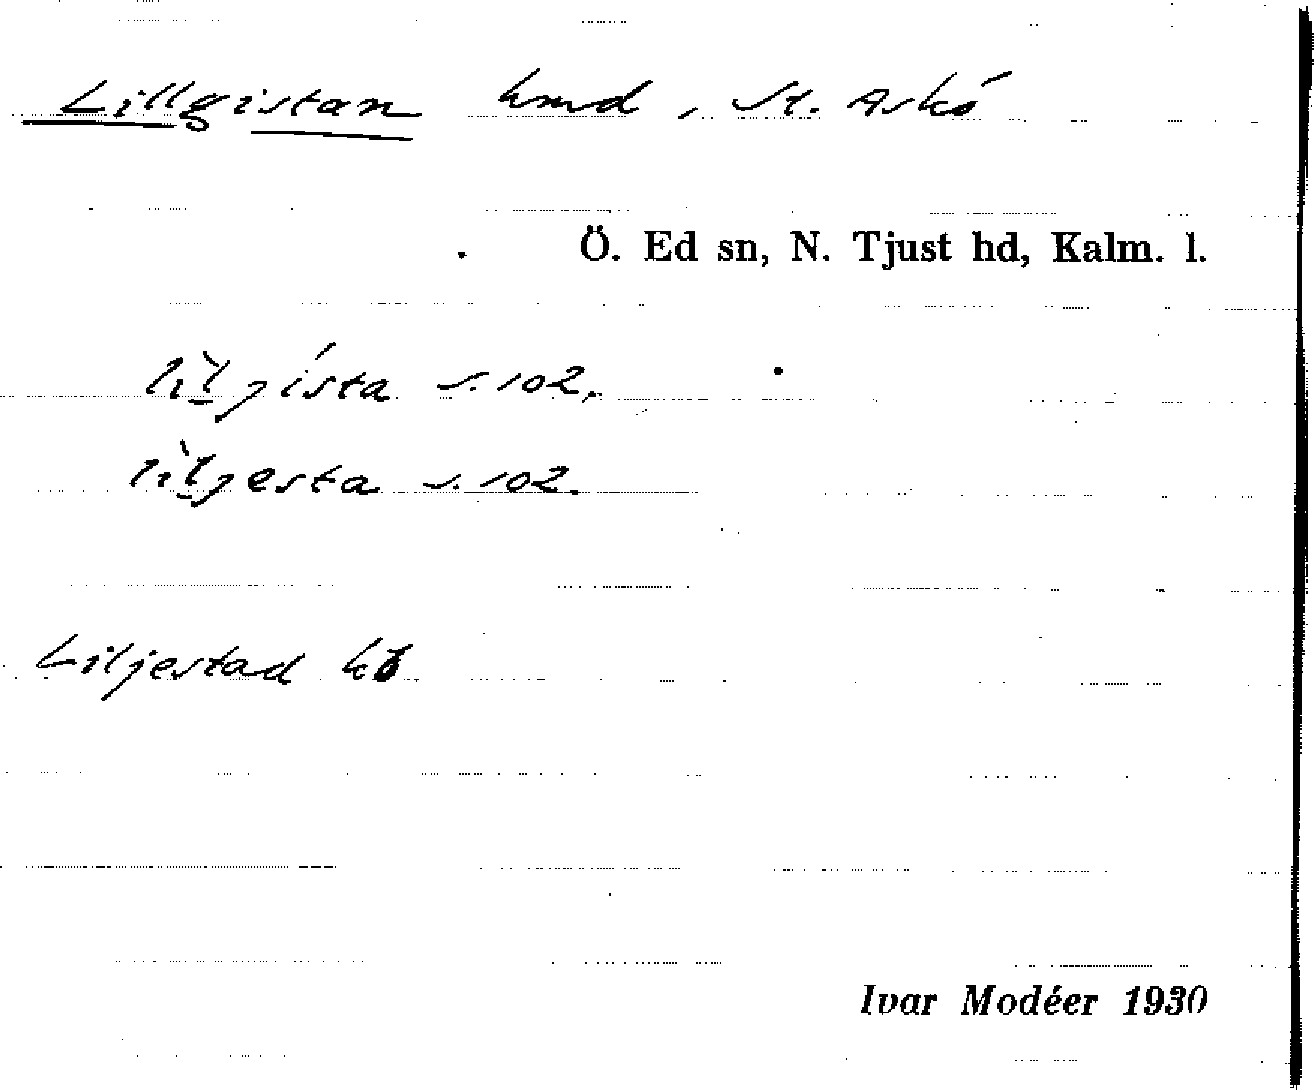 Lillgistan hmd, St. Askö
Ö. Ed sn, N. Tjust hd, Kalm. l.
lìljísta s. 102.
lìljesta s. 102.
Liljestad
Ivar Modéer 1930